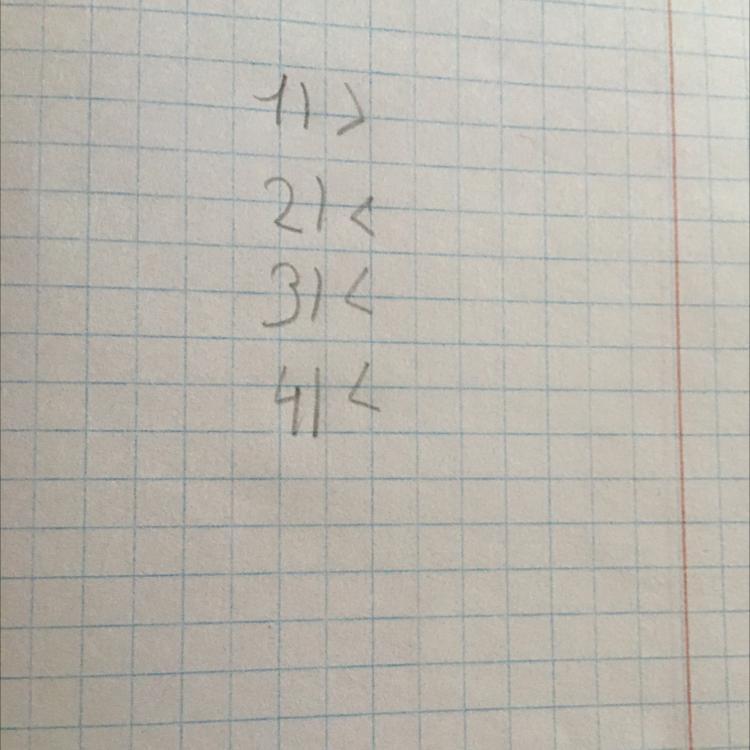 1) >
2) <
3) <
4) <